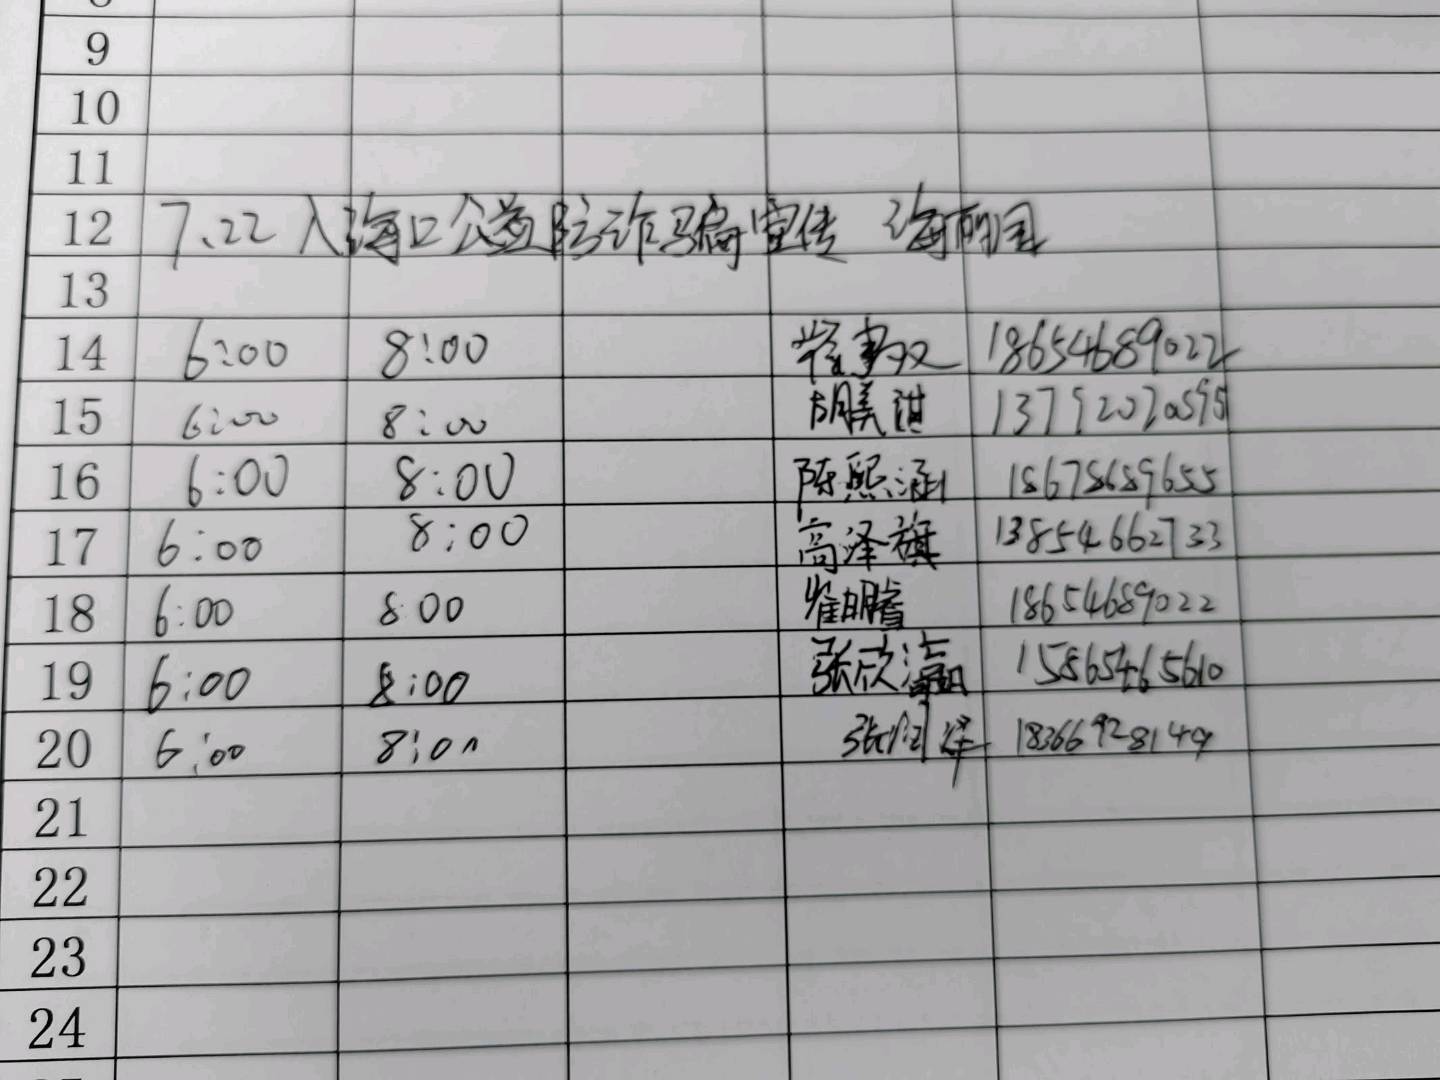 9
10
11
12 7.22 入海口公益防诈骗宣传 海丽国
13
14 6:00 8:00 18654689022
15 6:00 8:00 胡美淇
16 6:00 8:00 陈熙涵 18678689655
17 6:00 8:00 高泽旗 13854662733
18 6:00 8:00 崔明睿 18654689022
19 6:00 8:00 张欣瀛 15865465610
20 6:00 8:00 18366928149
21
22
23
24